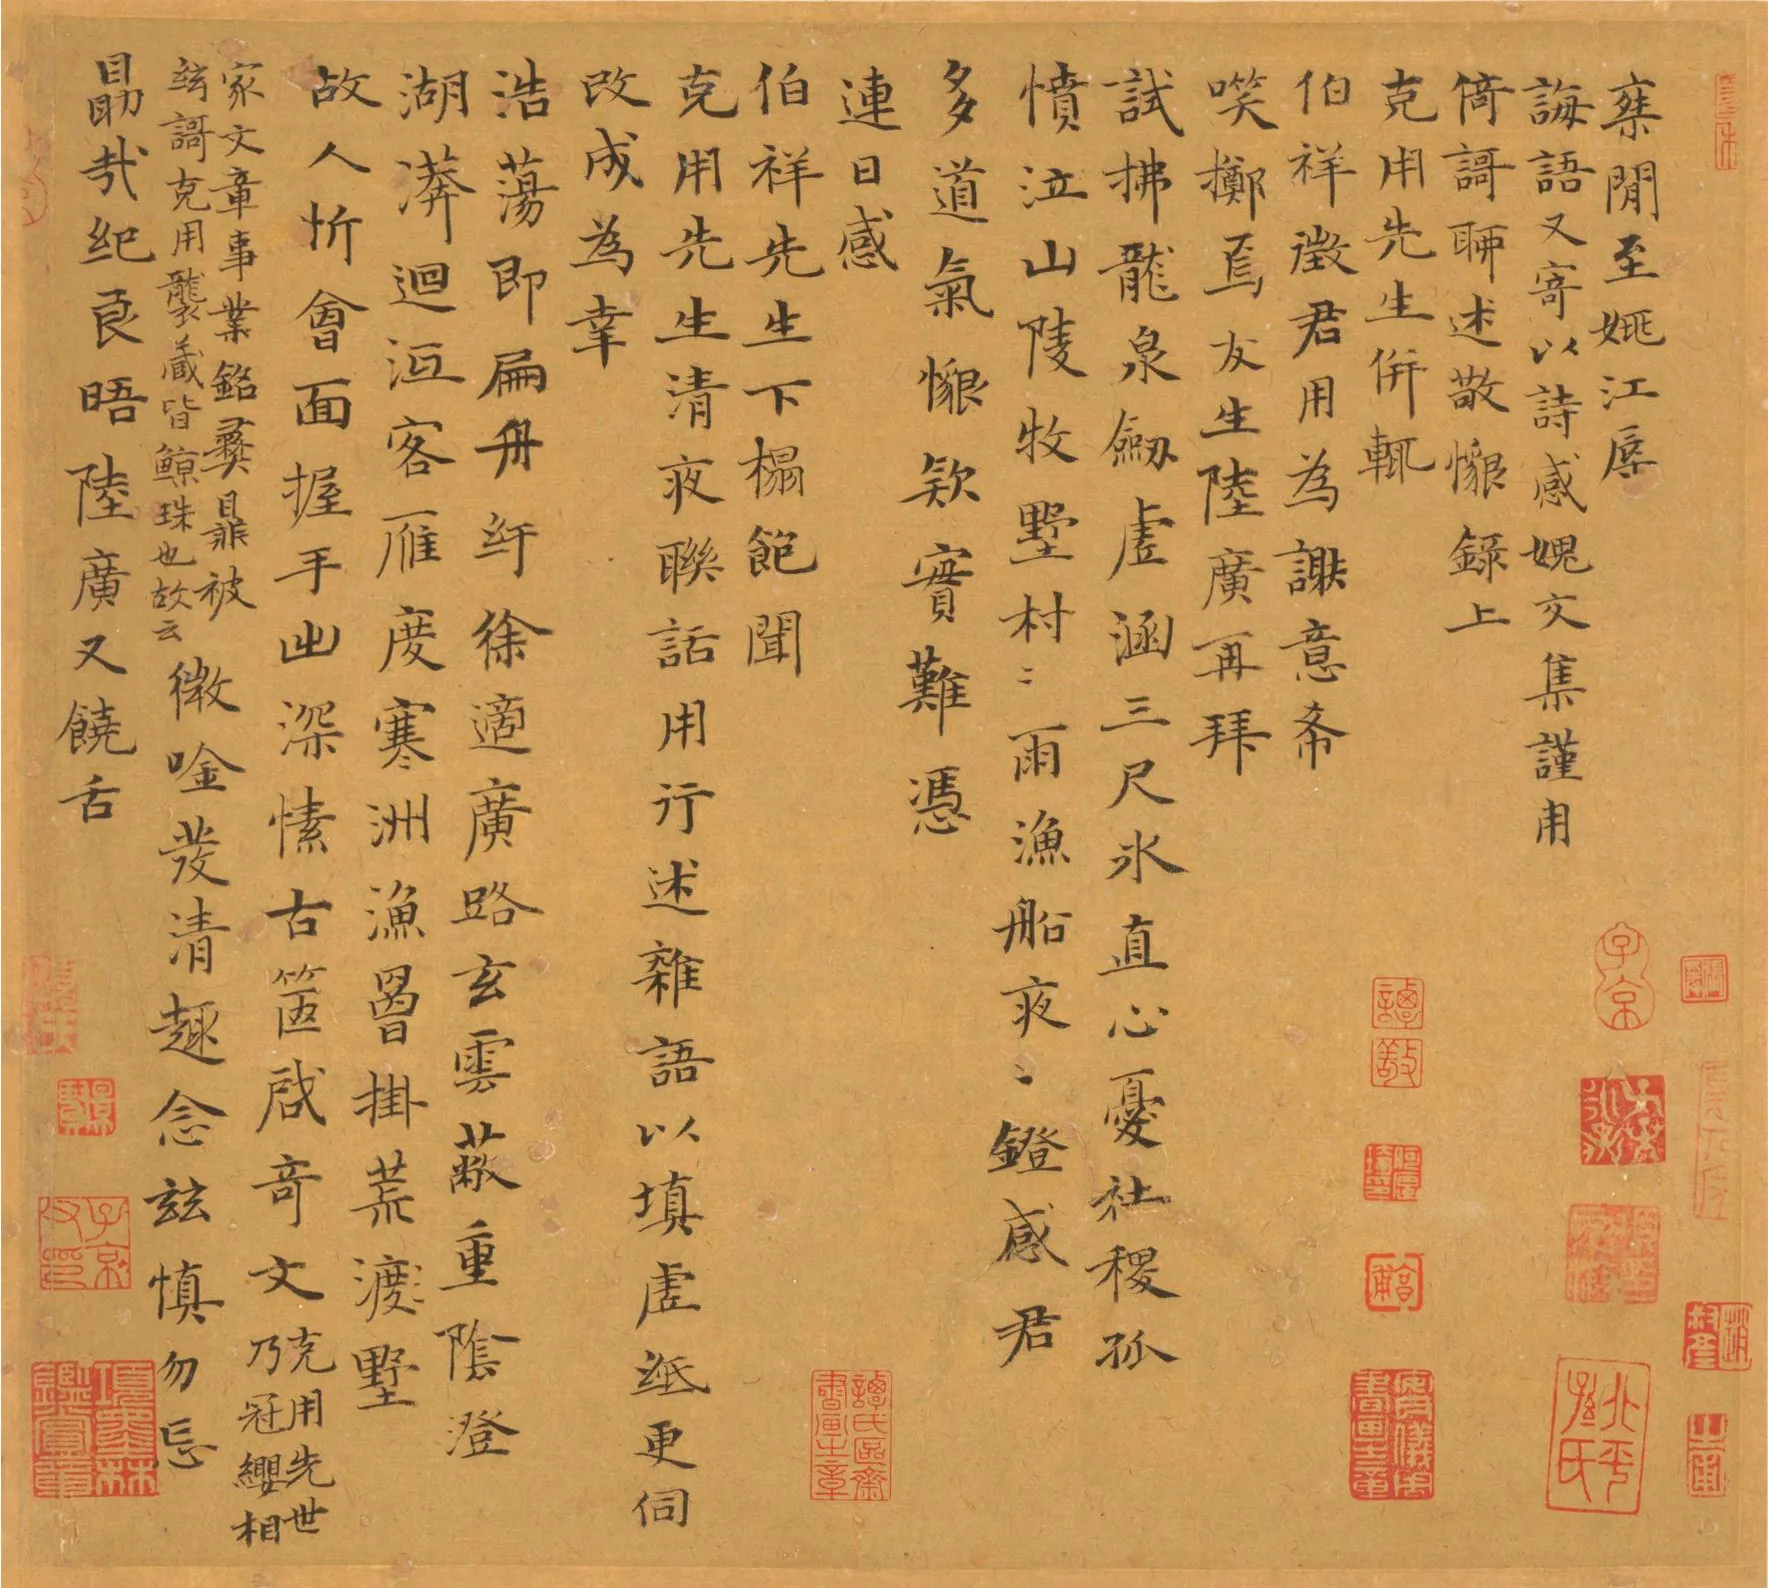 棄閒至姚江辱
誨語又寄以詩感媿交集謹用
倚謌聊述敬懷録上
克用先生併輒
伯祥徵君用為謝意希
咲擲焉友生陸廣再拜
試拂龍泉劔虗涵三尺氷直心憂社稷孤
憤泣山陵牧墅村〻雨漁船夜〻鐙感君
多道氣懷欵實難憑
連日感
伯祥先生下榻飽聞
克用先生清夜聯話用行述雜語以填虗紙更伺
改成為幸
浩蕩即扁舟紆徐適廣路玄雲蔽重陰澄
湖漭迴沍客雁度寒洲漁罾掛荒渡墅
故人忻會面握手出深愫古篋啟奇文克用先世
乃冠纓相
家文章事業銘彞鼎被
絃謌克用襲藏皆鯨珠也故云
微唫發清趣念玆慎勿忘
勗哉紀良晤陸廣又饒舌
子京
譚氏區齋書畫之章
北平孫氏
項墨林鑑賞章